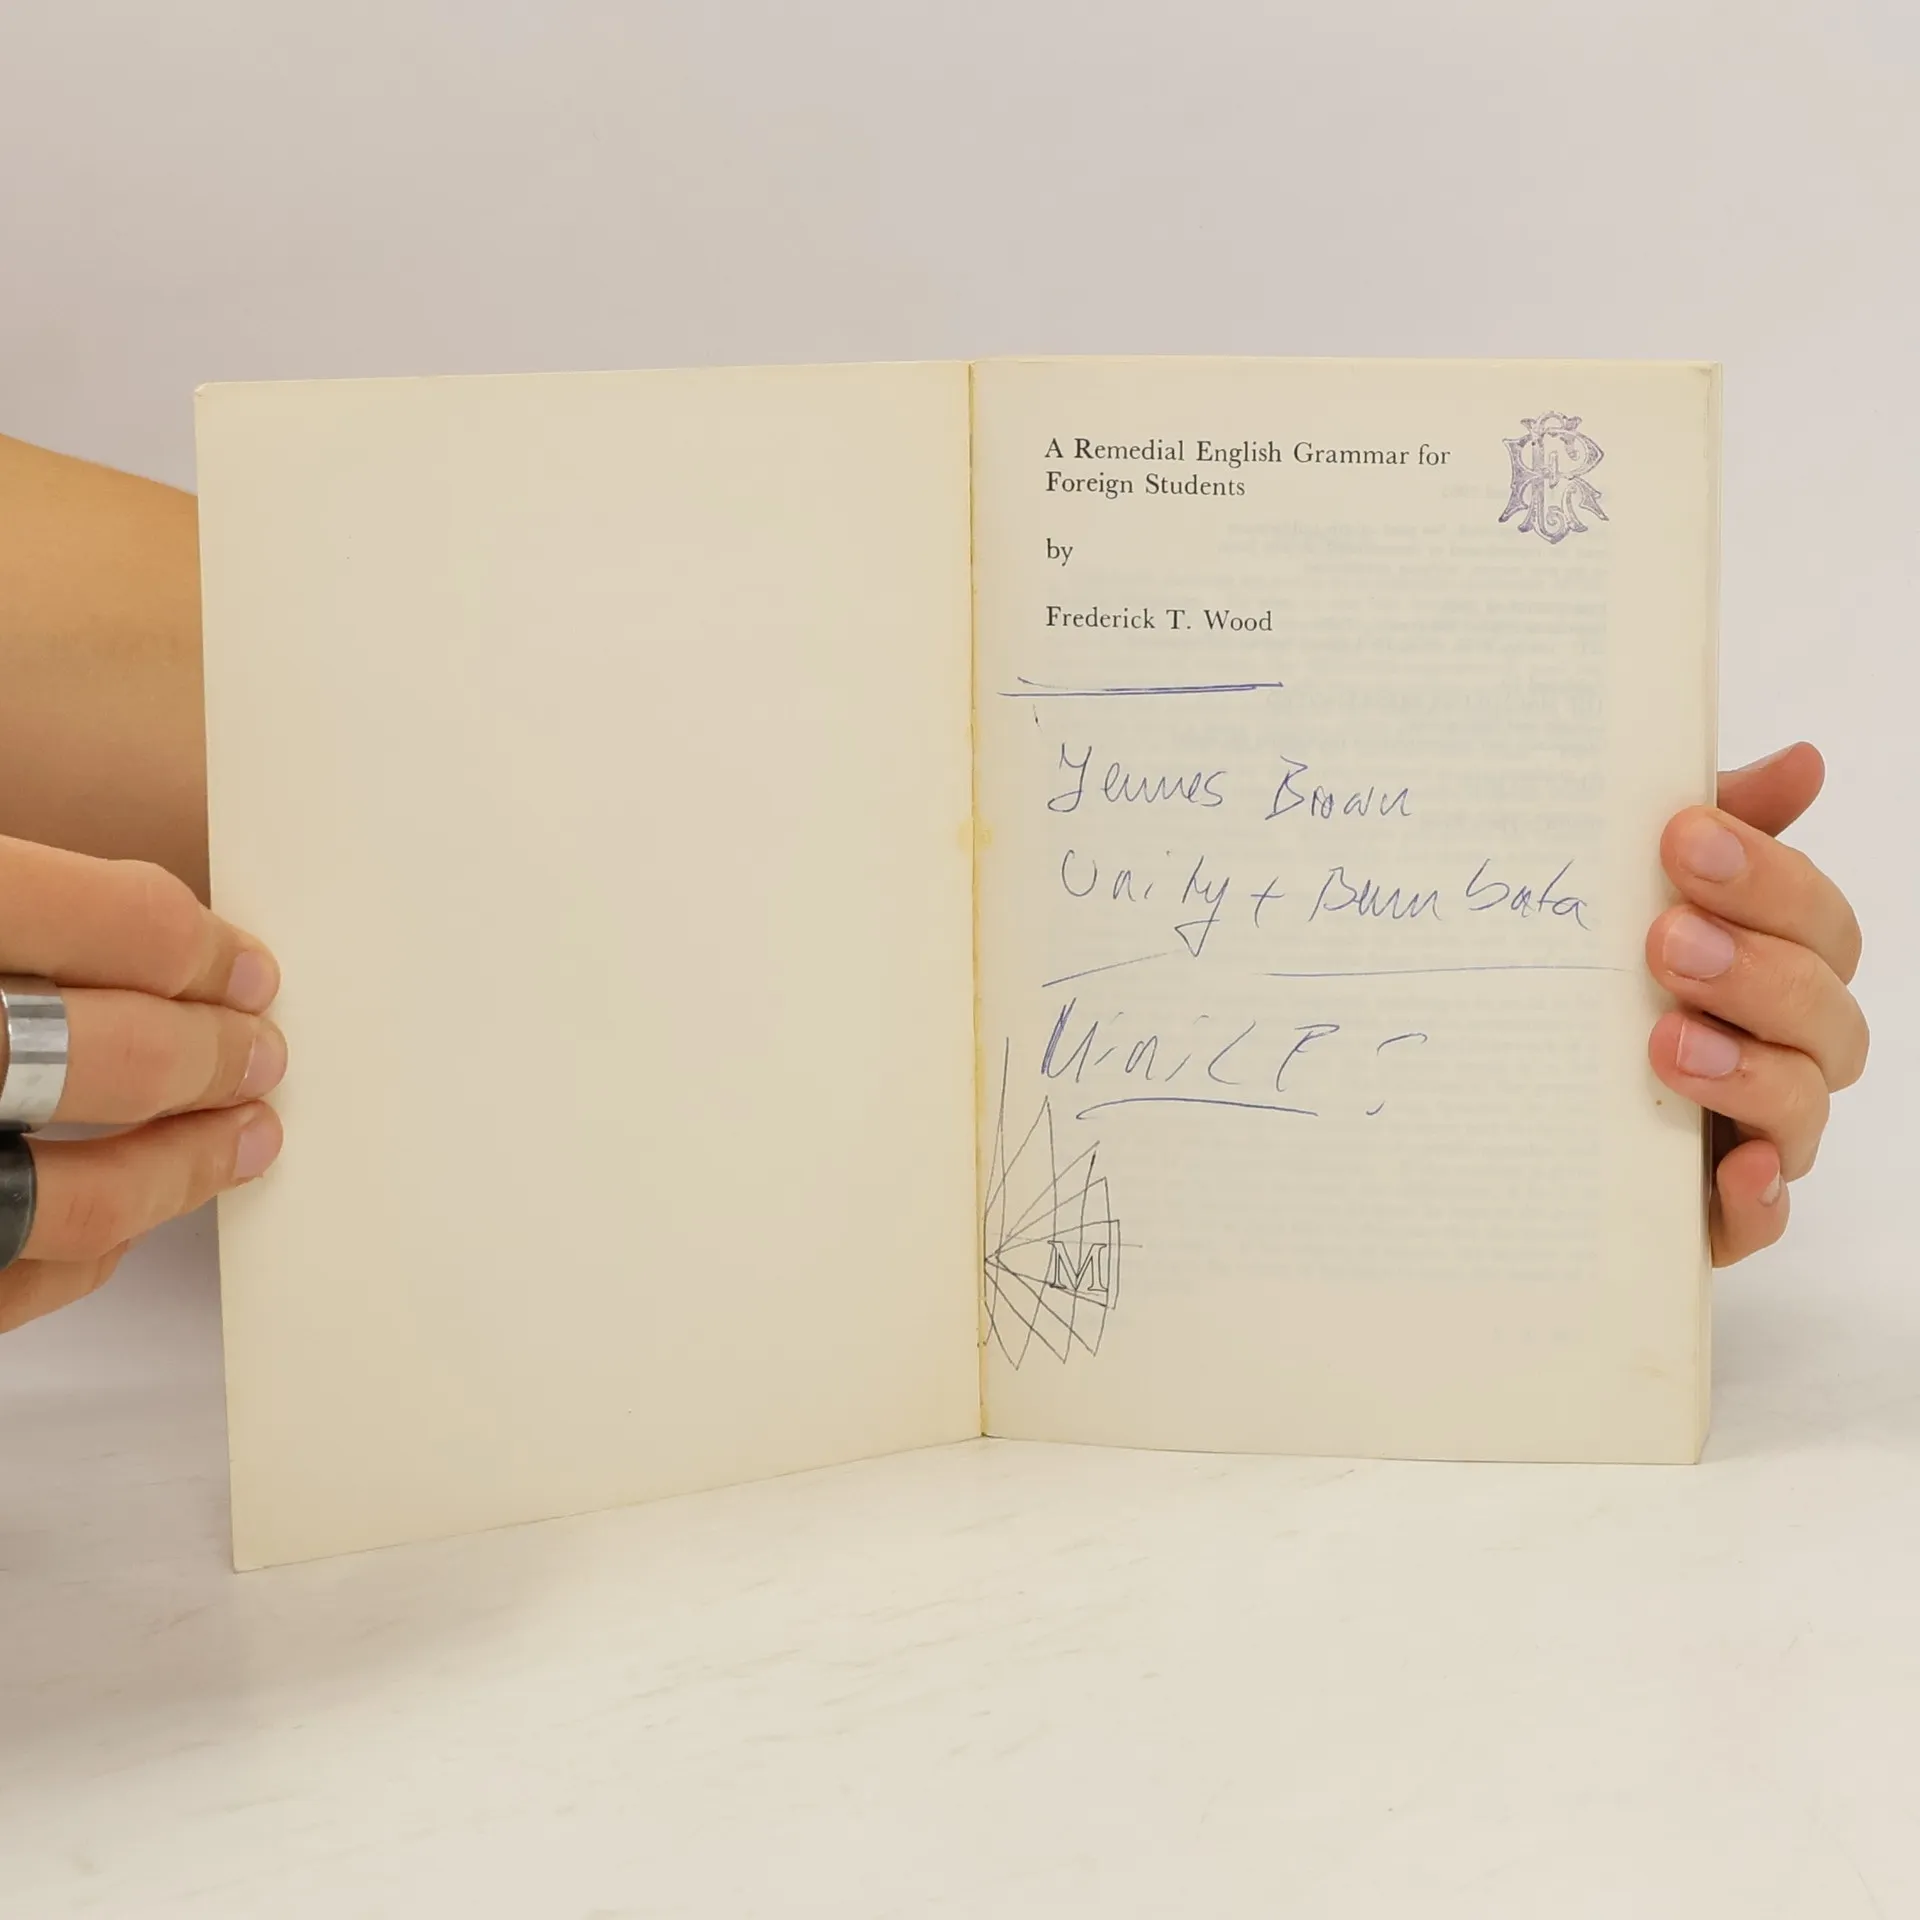 A Remedial English Grammar for
Foreign Students
by
Frederick T. Wood
Yemmes Brown
Unity +
M